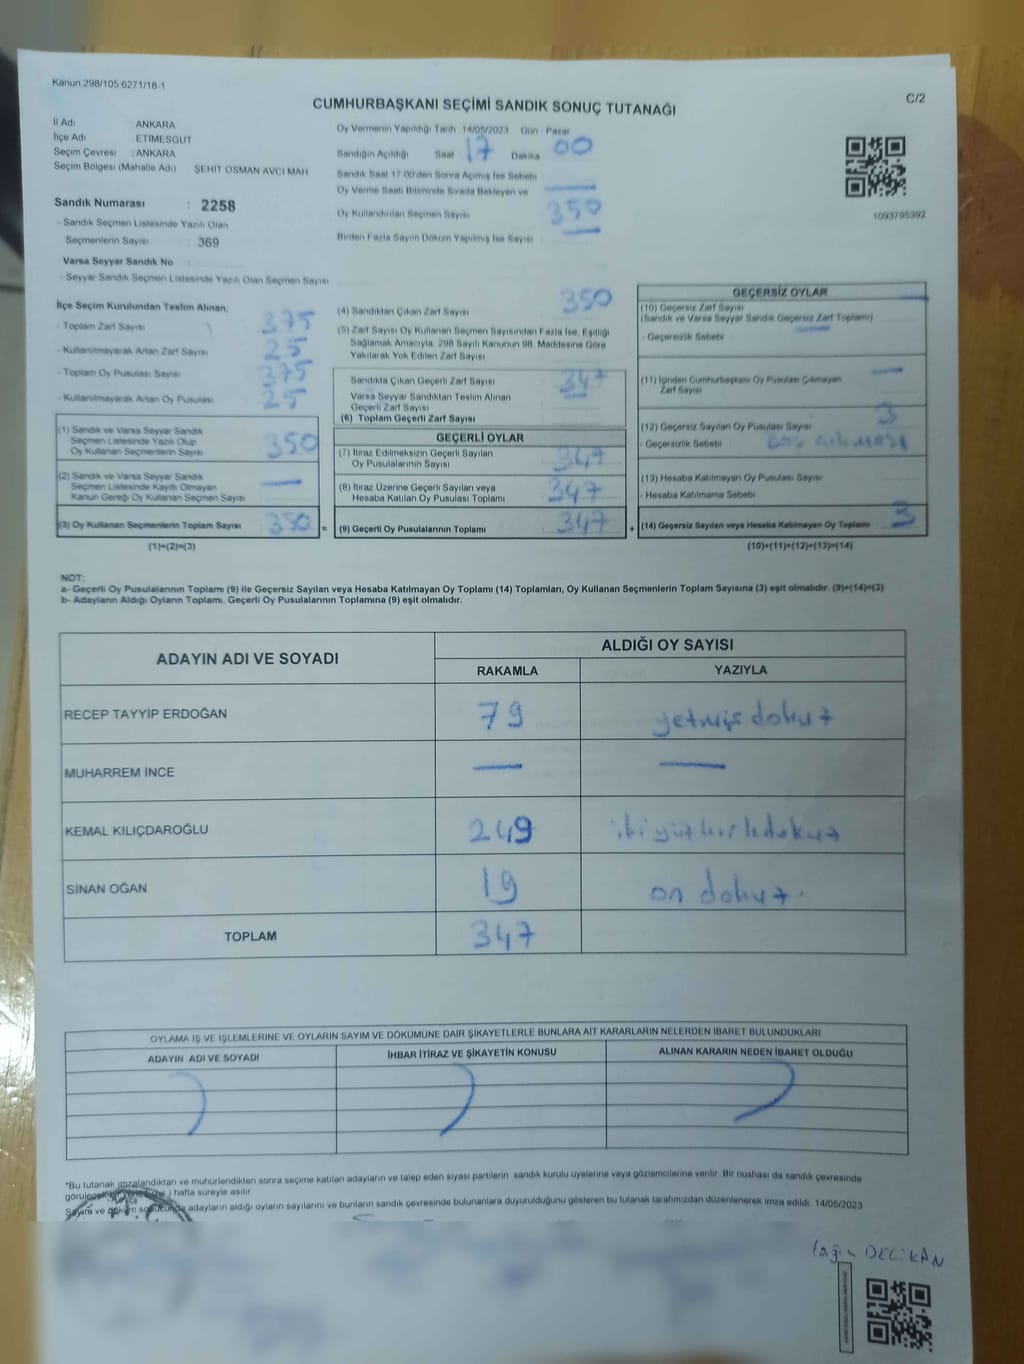 Kanun.298/105.6271/18-1
C/2
CUMHURBAŞKANI SEÇİMİ SANDIK SONUÇ TUTANAĞI
İl Adı ANKARA
İlçe Adı ETIMESGUT
Seçim Çevresi : ANKARA
Seçim Bölgesi (Mahalle Adı) ŞEHİT OSMAN AVCI MAH
Sandık Numarası : 2258
- Sandık Seçmen Listesinde Yazılı Olan
Seçmenlerin Sayısı : 369
Varsa Seyyar Sandık No :
- Seyyar Sandık Seçmen Listesinde Yazılı Olan Seçmen Sayısı
Oy Vermenin Yapıldığı Tarih 14/05/2023 Gün : Pazar
Sandığın Açıldığı Saat 17 Dakika 00
Sandık Saat 17.00'den Sonra Açımış İse Sebebi
Oy Verme Saati Bitiminde Sırada Bekleyen ve
Oy Kullandırılan Seçmen Sayısı 350
Birden Fazla Sayım Döküm Yapılmış İse Sayısı
1093795392
İlçe Seçim Kurulundan Teslim Alınan;
- Toplam Zarf Sayısı 375
- Kullanılmayarak Artan Zarf Sayısı 25
- Toplam Oy Pusulası Sayısı 375
- Kullanılmayarak Artan Oy Pusulası 25
(1) Sandık ve Varsa Seyyar Sandık
Seçmen Listesinde Yazılı Olup
Oy Kullanan Seçmenlerin Sayısı 350
(2) Sandık ve Varsa Seyyar Sandık
Seçmen Listesinde Kayıtlı Olmayan
Kanun Gereği Oy Kullanan Seçmen Sayısı —
(3) Oy Kullanan Seçmenlerin Toplam Sayısı 350
(1)+(2)=(3)
(4) Sandıktan Çıkan Zarf Sayısı 350
(5) Zarf Sayısı Oy Kullanan Seçmen Sayısından Fazla İse, Eşitliği
Sağlamak Amacıyla, 298 Sayılı Kanunun 98. Maddesine Göre
Yakılarak Yok Edilen Zarf Sayısı
Sandıkta Çıkan Geçerli Zarf Sayısı 347
Varsa Seyyar Sandıktan Teslim Alınan
Geçerli Zarf Sayısı
(6) Toplam Geçerli Zarf Sayısı
GEÇERLİ OYLAR
(7) İtiraz Edilmeksizin Geçerli Sayılan
Oy Pusulalarının Sayısı 347
(8) İtiraz Üzerine Geçerli Sayılan veya
Hesaba Katılan Oy Pusulası Toplamı 347
= (9) Geçerli Oy Pusulalarının Toplamı 347
GEÇERSİZ OYLAR
(10) Geçersiz Zarf Sayısı
(Sandık ve Varsa Seyyar Sandık Geçersiz Zarf Toplamı)
- Geçersizlik Sebebi
(11) İçinden Cumhurbaşkanı Oy Pusulası Çıkmayan —
Zarf Sayısı
(12) Geçersiz Sayılan Oy Pusulası Sayısı 3
- Geçersizlik Sebebi
(13) Hesaba Katılmayan Oy Pusulası Sayısı
- Hesaba Katılmama Sebebi
+ (14) Geçersiz Sayılan veya Hesaba Katılmayan Oy Toplamı 3
(10)+(11)+(12)+(13)=(14)
NOT:
a- Geçerli Oy Pusulalarının Toplamı (9) ile Geçersiz Sayılan veya Hesaba Katılmayan Oy Toplamı (14) Toplamları, Oy Kullanan Seçmenlerin Toplam Sayısına (3) eşit olmalıdır. (9)+(14)=(3)
b- Adayların Aldığı Oyların Toplamı, Geçerli Oy Pusulalarının Toplamına (9) eşit olmalıdır.
ADAYIN ADI VE SOYADI ALDIĞI OY SAYISI
RAKAMLA YAZIYLA
RECEP TAYYİP ERDOĞAN 79 yetmiş dokuz
MUHARREM İNCE — —
KEMAL KILIÇDAROĞLU 249 ikiyüz kırk dokuz
SİNAN OĞAN 19 on dokuz
TOPLAM 347
OYLAMA İŞ VE İŞLEMLERİNE VE OYLARIN SAYIM VE DÖKÜMÜNE DAİR ŞİKAYETLERLE BUNLARA AİT KARARLARIN NELERDEN İBARET BULUNDUKLARI
ADAYIN ADI VE SOYADI İHBAR İTİRAZ VE ŞİKAYETİN KONUSU ALINAN KARARIN NEDEN İBARET OLDUĞU
*Bu tutanak imzalandıktan ve mühürlendikten sonra seçime katılan adayların ve talep eden siyasi partilerin sandık kurulu üyelerine veya gözlemcilerine verilir. Bir nüshası da sandık çevresinde
hafta süreyle asılır.
Sayım ve döküm sonucunda adayların aldığı oyların sayılarını ve bunların sandık çevresinde bulunanlara duyurulduğunu gösteren bu tutanak tarafımızdan düzenlenerek imza edildi. 14/05/2023
DELİKAN